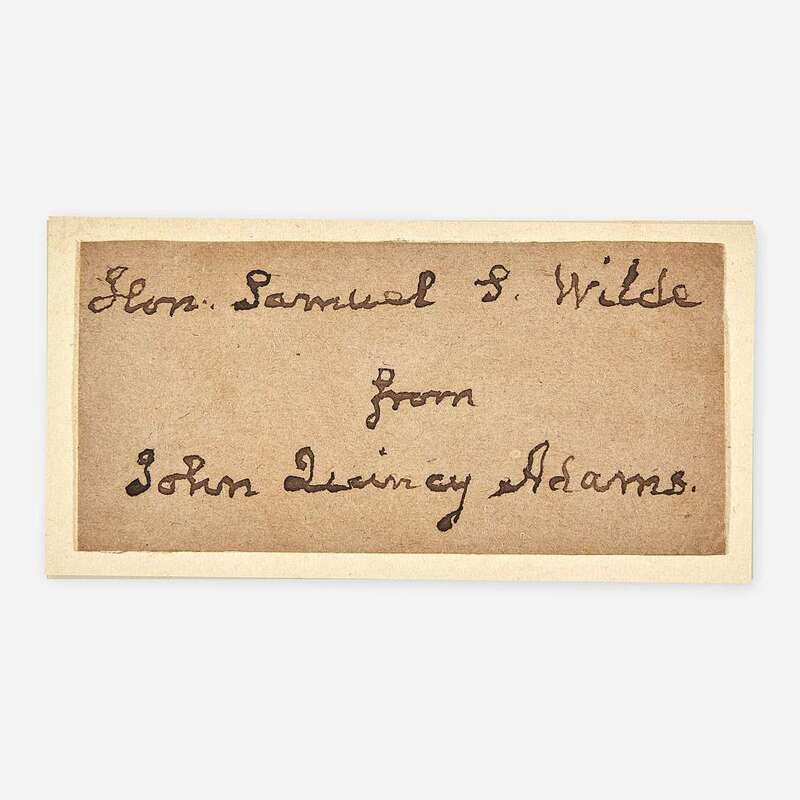 Hon. Samuel S. Wilde
from
John Quincy Adams.